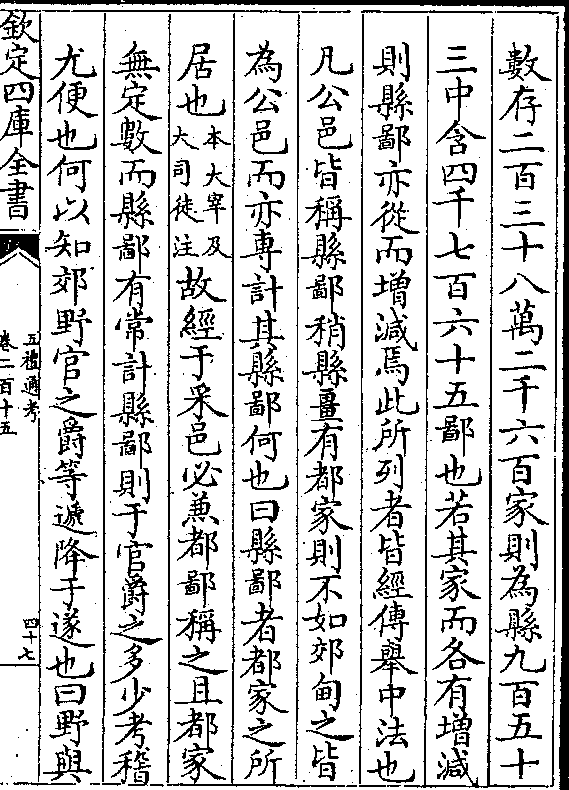 數存二百三十八萬二千六百家則為縣九百五十
三中含四千七百六十五鄙也若其家而各有增減
則縣鄙亦從而增減焉此所列者皆經傳舉中法也
凡公邑皆稱縣鄙稍縣畺有都家則不如郊甸之皆
為公邑而亦專計其縣鄙何也曰縣鄙者都家之所
居也本大宰及大司徒注故經于采邑必兼都鄙稱之且都家
無定數而縣鄙有常計縣鄙則于官爵之多少考稽
尤便也何以知郊野官之爵等遞降于遂也曰野與
欽定四庫全書
五禮通考
卷二百十五
四十七